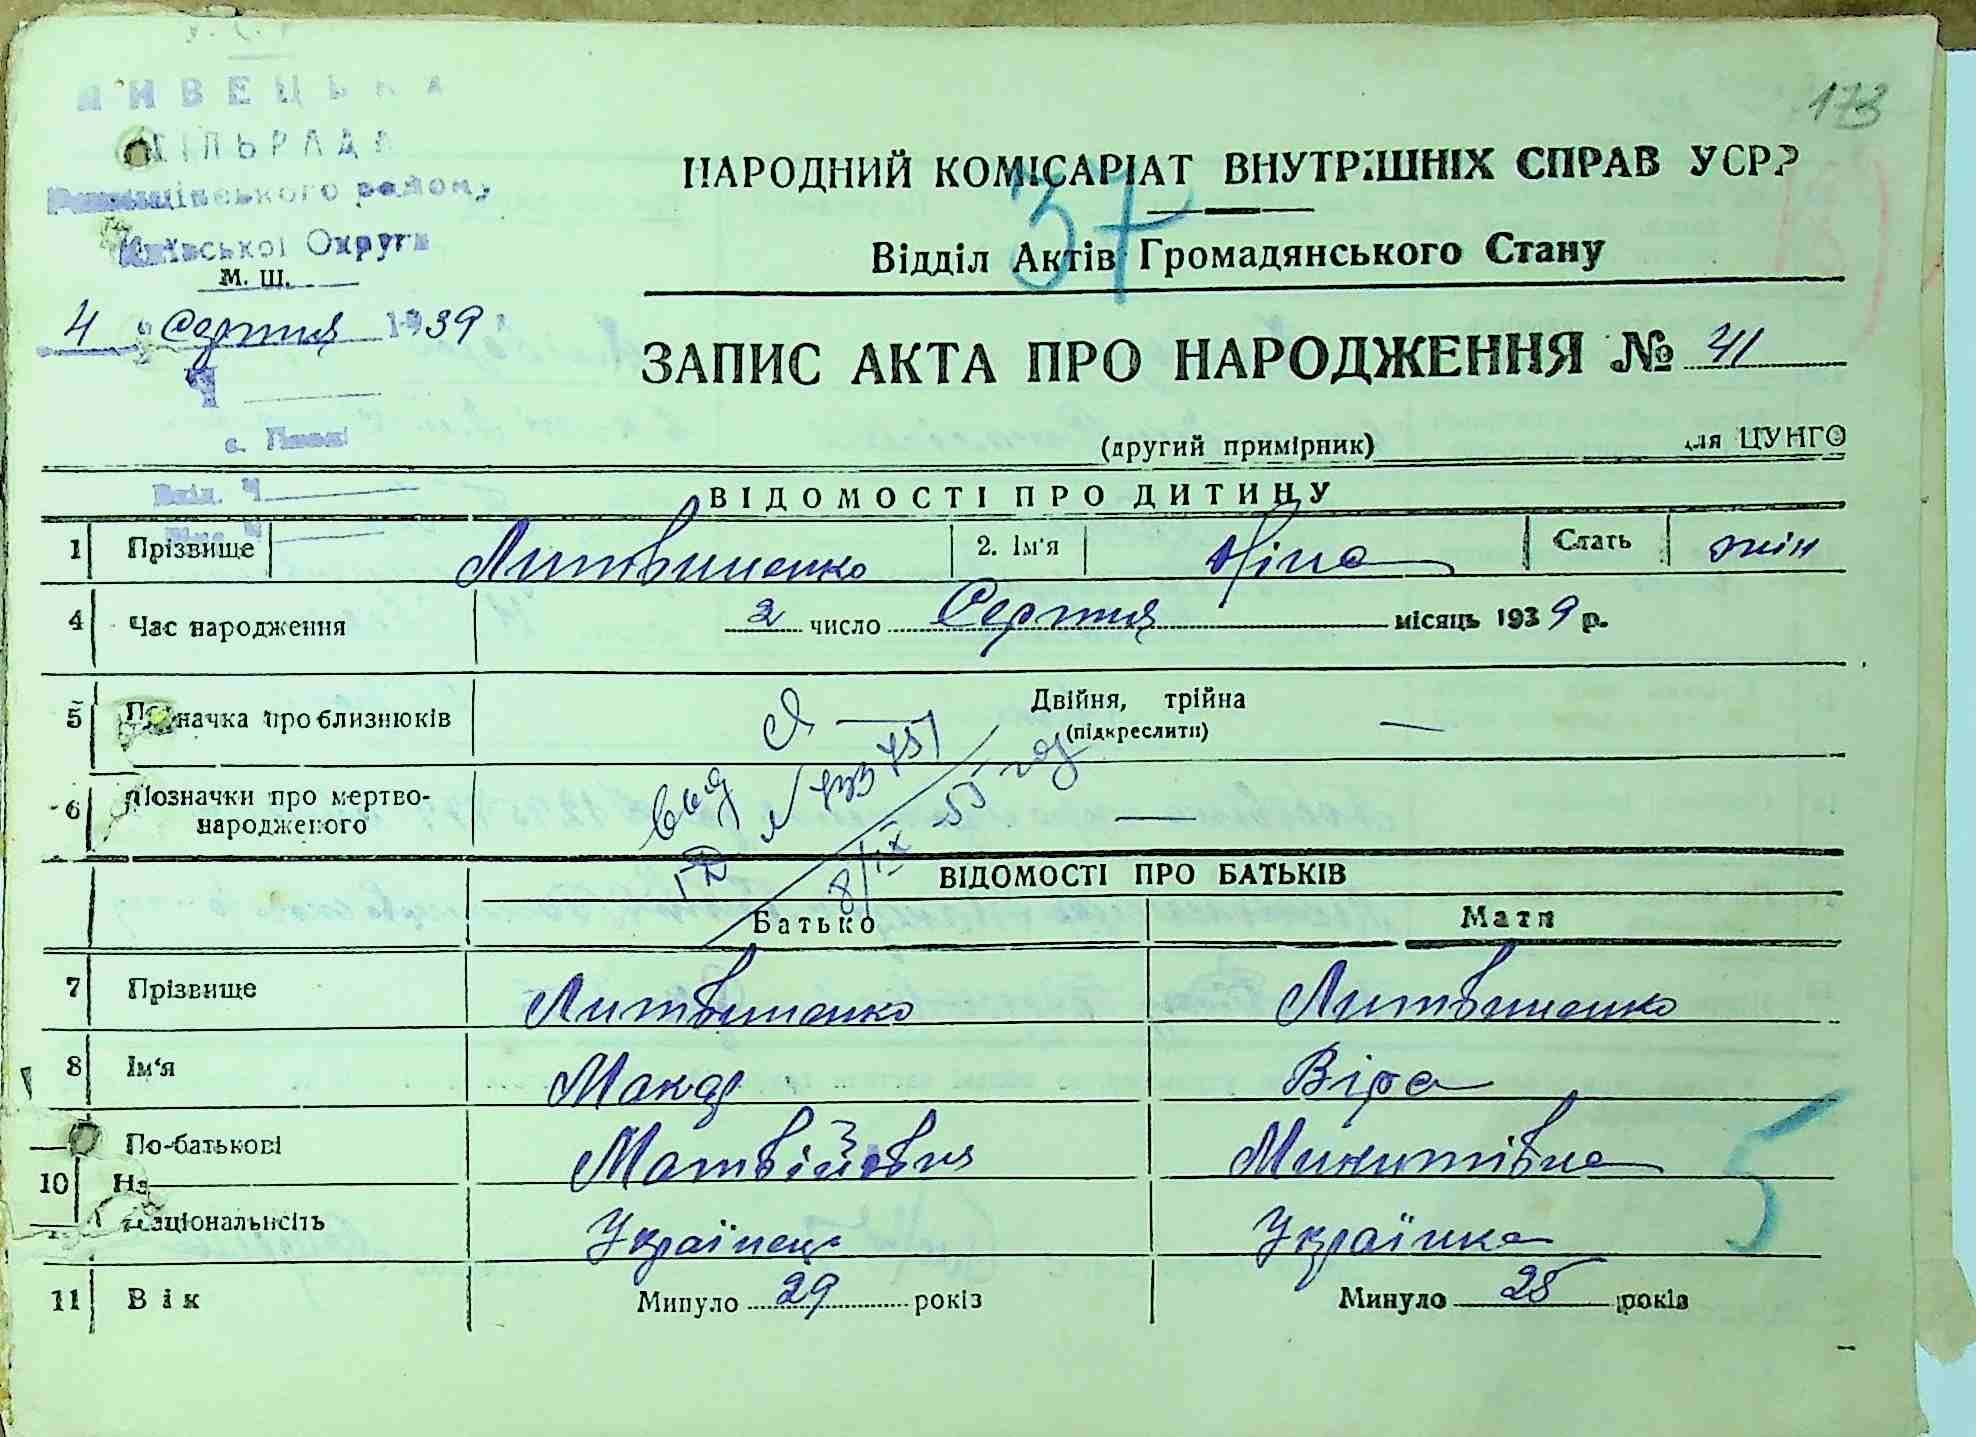 173
СІЛЬРАДА
району
Київської Округи
М. Ш.
4 Серпня 1939
НАРОДНИЙ КОМІСАРІАТ ВНУТРІШНІХ СПРАВ УСРР
37
Відділ Актів Громадянського Стану
ЗАПИС АКТА ПРО НАРОДЖЕННЯ № 41
(другий примірник) для ЦУНГО
ВІДОМОСТІ ПРО ДИТИНУ
1 Прізвище Литвиненко 2. Ім'я Ніна Стать жін
4 Час народження 2 число Серпня місяць 1939 р.
5 Позначка про близнюків — Двійня, трійна —
(підкреслити)
6 Позначки про мертво-
народженого —
выд
8/IX 55 год
ВІДОМОСТІ ПРО БАТЬКІВ
Батько Мати
7 Прізвище Литвиненко Литвиненко
8 Ім'я Макар Віра
По-батькові Матвійович Микитівна
5
10 На
Національність Українець Українка
11 Вік Минуло 29 років Минуло 28 років